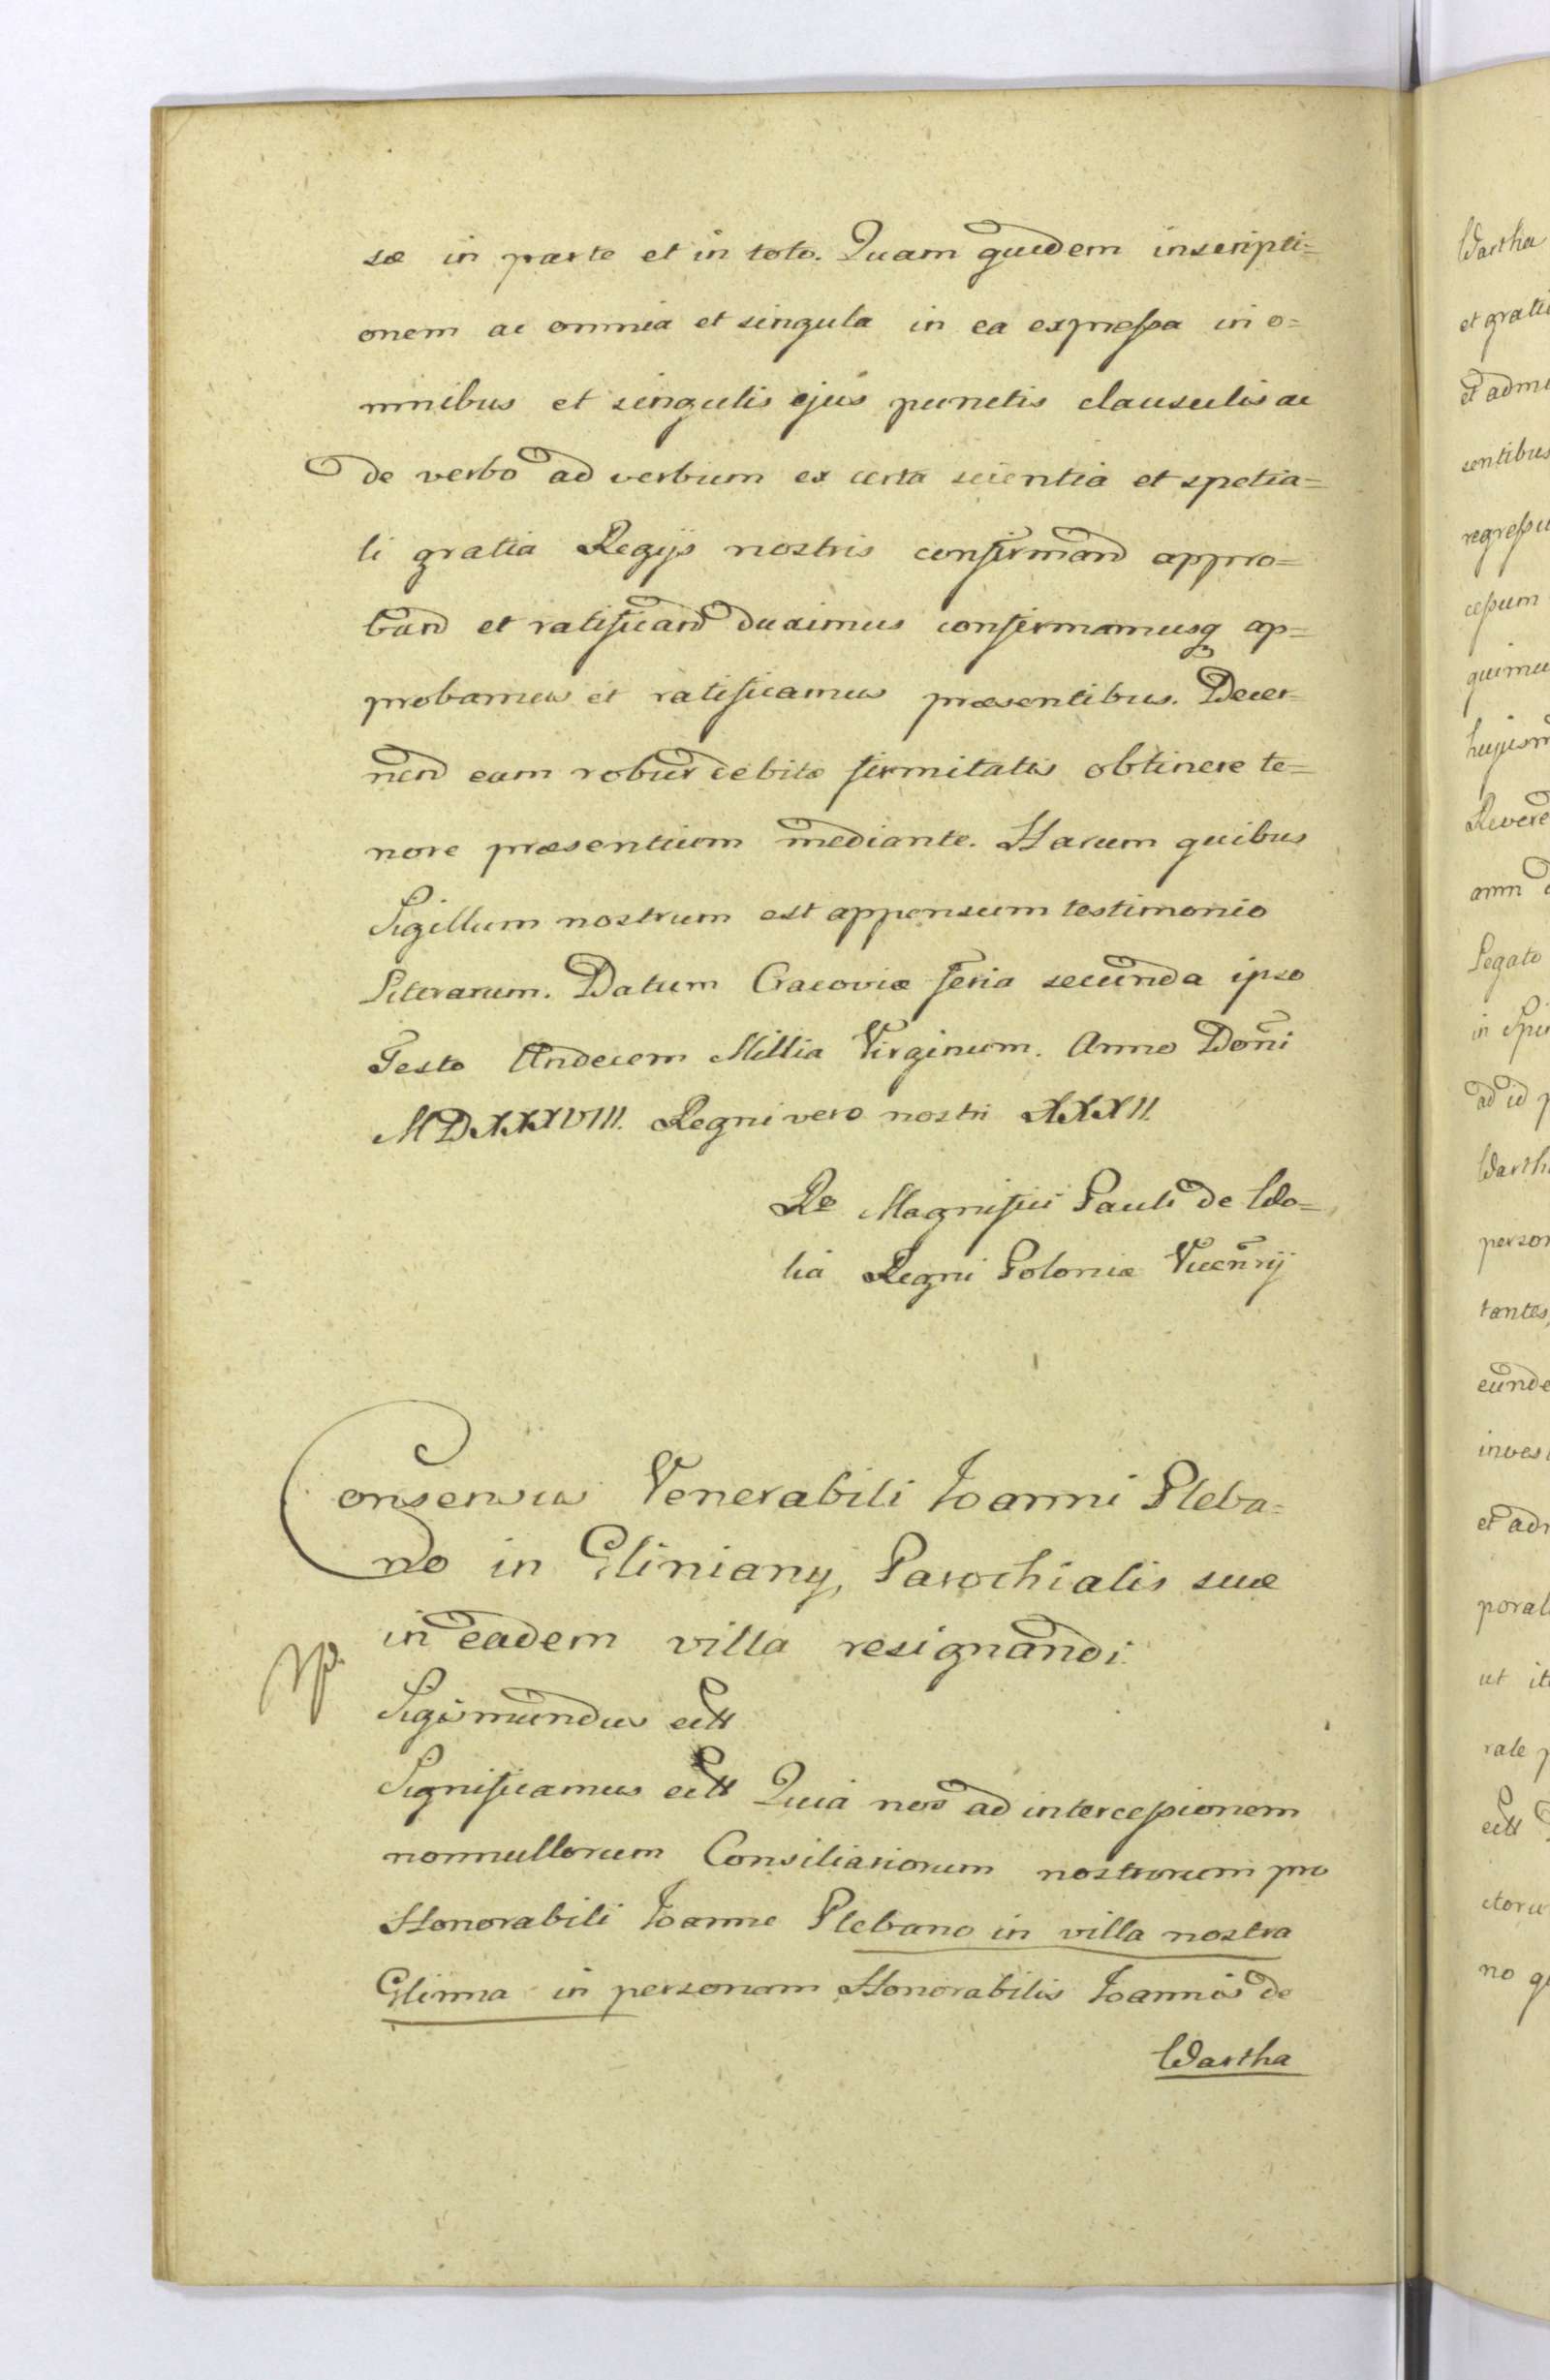 sæ in parte et in toto. Quam quidem inscripti=
onem ac omnia et singula in ea expressa in o=
mnibus et singulis ejus punctis clausulis ac
de verbo ad verbum ex certa scientia et spetia=
li gratia Regijs nostris confirmand appro=
band et ratificand duximus confirmamusq ap=
probamus et ratificamus præsentibus. Decer=
nend eam robur debitæ firmitatis obtinere te=
nore præsentium mediante. Harum quibus
Sigillum nostrum est appensum testimonio
Literarum. Datum Cracoviæ feria secunda ipso
Festo Undecem Millia Virginum. Anno Doni
MDXXXVIII. Regni vero nostri XXXII.
Ro Magnifici Pauli de Wo=
lia Regni Poloniæ Vicenrij
Consensus Venerabili Joanni Pleba=
no in Gliniany, Parochialis suæ
in eadem villa resignandi.
Sigismundus ectt
Significamus ectt Quia nos ad intercessionem
nonnullorum Consiliariorum nostrorum pro
Honorabili Joanne Plebano in villa nostra
Glinna in personam Honorabilis Joannis de
Wartha
Wartha
et grati
et admi
sentibus
regressu
cessum
quimu
hujusm
Revere
ann d
Legato
in Spir
ad id p
Warth
person
tantes,
eunde
invest
et adm
poral
ut it
rale p
ectt
ctoru
no q